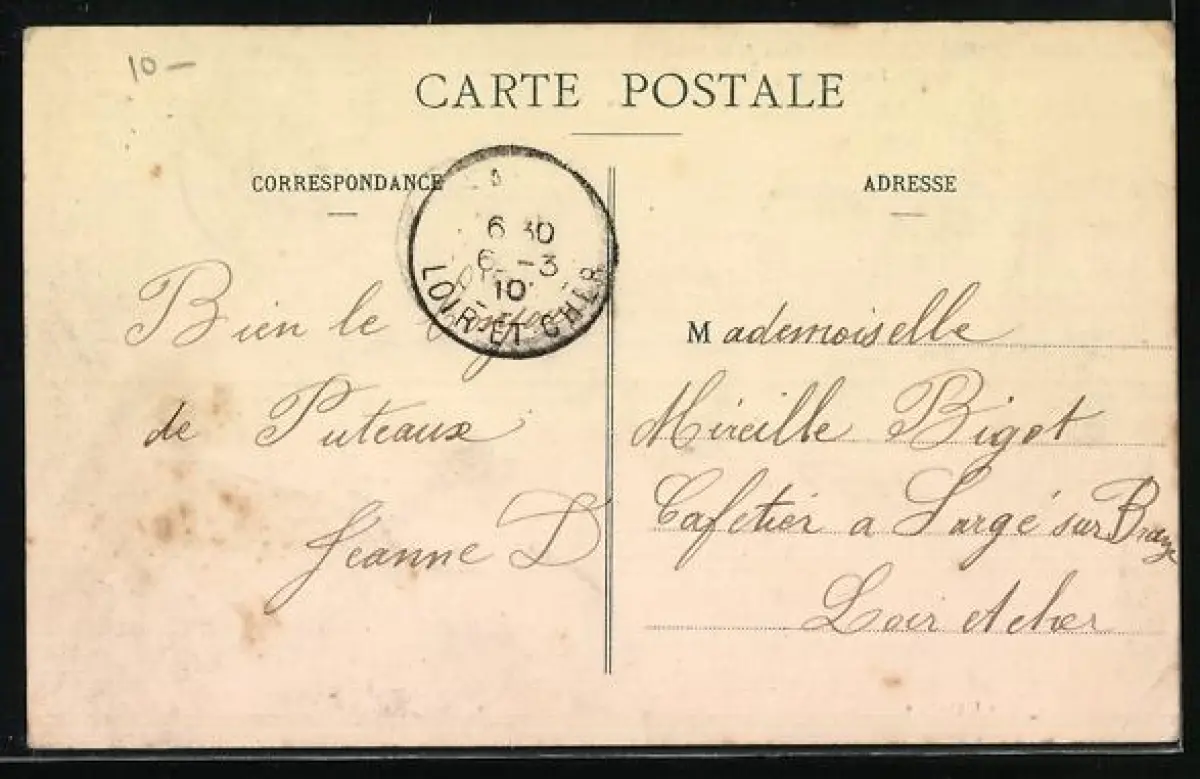 10 —
CARTE POSTALE
CORRESPONDANCE
ADRESSE
6 30
6 -3
10
LOIR-ET-CHER
Bien le
de Puteaux
Jeanne D
Mademoiselle
Mireille Bigot
Cafetier a Sargé sur Braye
Loir et cher